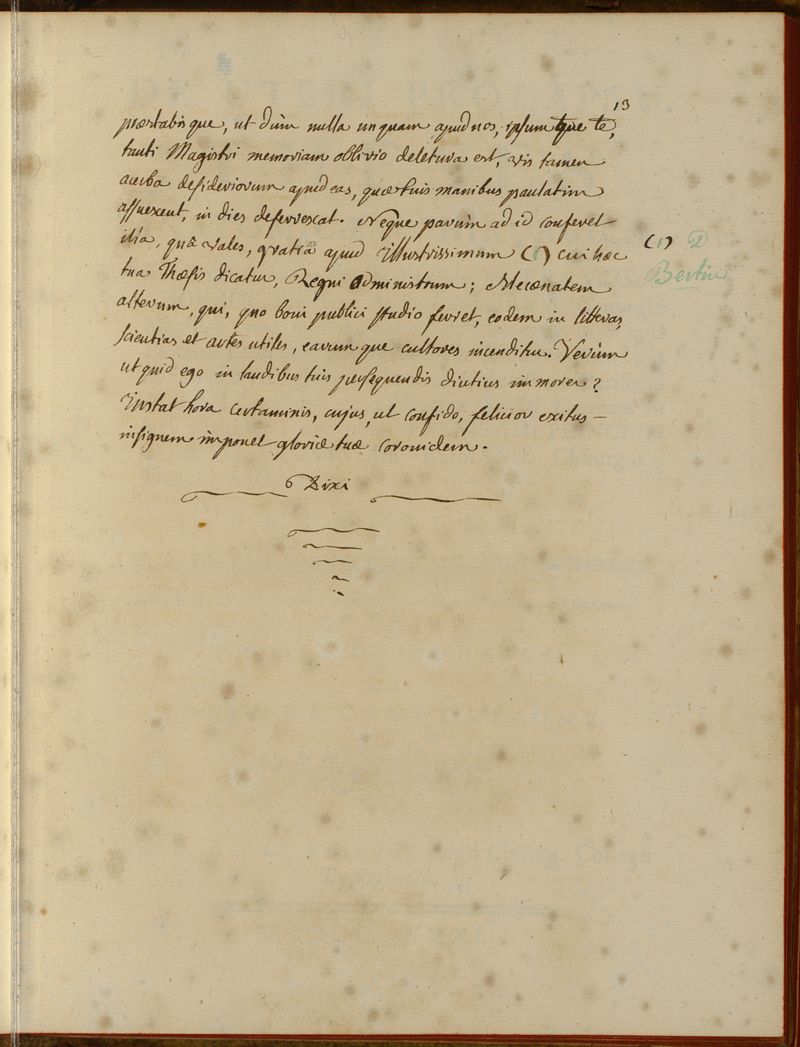 13
præstabisque, ut dùm nulla unquam apud nos, ipsumque te,
tanti Magistri memoriam oblivio deletura est, vis tamen
acerba desideriorum apud eas, quæ tuis manibus paulatim
assuescent, in dies defervescat. Neque parùm ad id conferet
illa, quâ vales, gratia apud illustrissimum (1) cui hæc
(1) D
tua Thæsis dicatur, Regni Administrum; Mecænatem
Bertin
alterum, qui, quo boni publici studio fervet, eodem in litteras,
scientias et artes utiles, earumque cultores incenditur. Verùm
ut quid ego in laudibus tuis persequendis diutius immorer?
instat hora certaminis, cujus, ut confido, felicior exitus
insignem imponet gloriæ tuæ coronidem.
Dixi